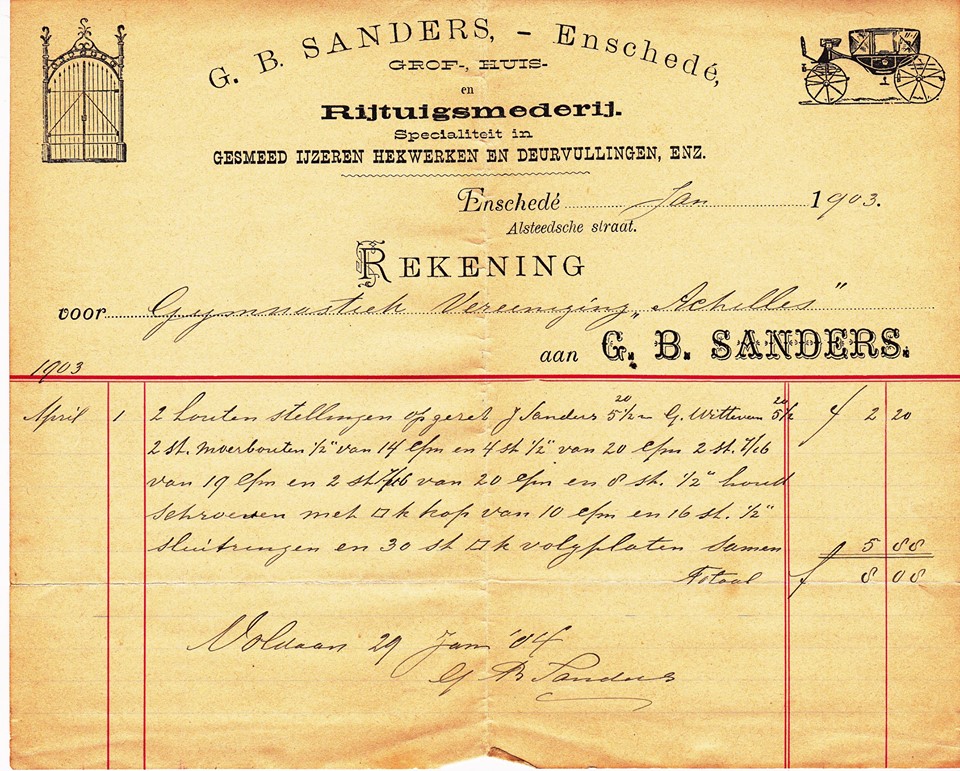 G. B. SANDERS, - Enschedé,
GROF-, HUIS-
en
Rijtuigsmederij.
Specialiteit in
GESMEED IJZEREN HEKWERKEN EN DEURVULLINGEN, ENZ.
Enschedé Jan 1903.
Alsteedsche straat.
REKENING
voor Gymnastiek Vereeniging „Achilles"
aan G. B. SANDERS.
1903
April 1 2 houten stellingen opgezet J Sanders 5½ 20 G. Witteven 5½ 20 f 2 20
2 st. moerbouten ½" van 14 c/m en 4 st ½" van 20 c/m 2 st. 7/16
van 19 c/m en 2 st 7/16 van 20 c/m en 8 st. ½" houd
schroeven met □k kop van 10 c/m en 16 st. ½"
sluitringen en 30 st □k volgplaten samen 5 88
Totaal f 8 08
Voldaan 29 Jan '04
G B Sanders